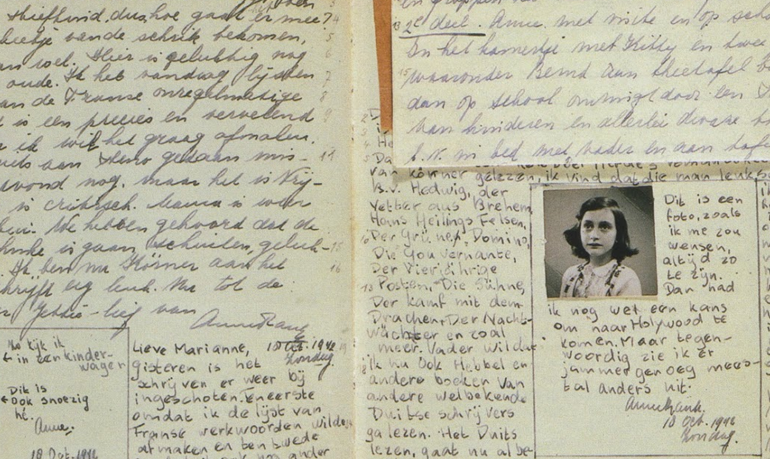 Kiefkind, dus hoe gaat er mee?
beetje van de schrik bekomen,
wel. Hier is gelukkig nog
oude. Ik heb vandaag lijsten
van de Franse onregelmatige
is een precies en vervelend
ik wil het graag afmaken.
van Steno gedaan mis-
avond nog, maar het is Vrij-
is critiesch. Mama is weer
We hebben gehoord dat de
is gaan schuilen, geluk-
Ik ben nu Körner aan het
erg leuk. Nu tot de
liefs van
Anne Frank
kijk ik
← in een kinder-
wagen
Dit is
← ook snoezig
hè.
Anne.
18 Oct. 1942
Lieve Marianne, 18 Oct. 1942
Zondag.
gisteren is het
schrijven er weer bij
ingeschoten. Eneerste
omdat ik de lijst van
Franse werkwoorden wilde
afmaken en ten twede
ook nog ander
2e deel. Anne met visite en op scho
En het kamertje met Kitty en twee
waaronder Bernd aan theetafel
dan op school omringd door een
van kinderen en allerlei dwaze
b.v. in bed met vader en aan tafel
van Körner gelezen, ik vind dat die man leuk
B.v. Hedwig, der
Vetter aus Bremen,
Hans Heilings Felsen,
Der Grüner Domino,
Die Gouvernante,
Der Vierjährige
Posten, Die Sühne,
Der Kampf mit dem
Drachen, Der Nacht-
wächter en zoal
meer. Vader wil dat
ik nu ook Hebbel en
andere boeken van
andere welbekende
Duitse schrijvers
ga lezen. Het Duits
lezen, gaat nu al be-
Dit is een
foto, zoals
ik me zou
wensen,
altijd zo
te zijn.
Dan had
ik nog wel een kans
om naar Holywood te
komen. Maar tegen-
woordig zie ik er
jammer genoeg mees-
tal anders uit.
Anne Frank.
18 Oct. 1942
Zondag.